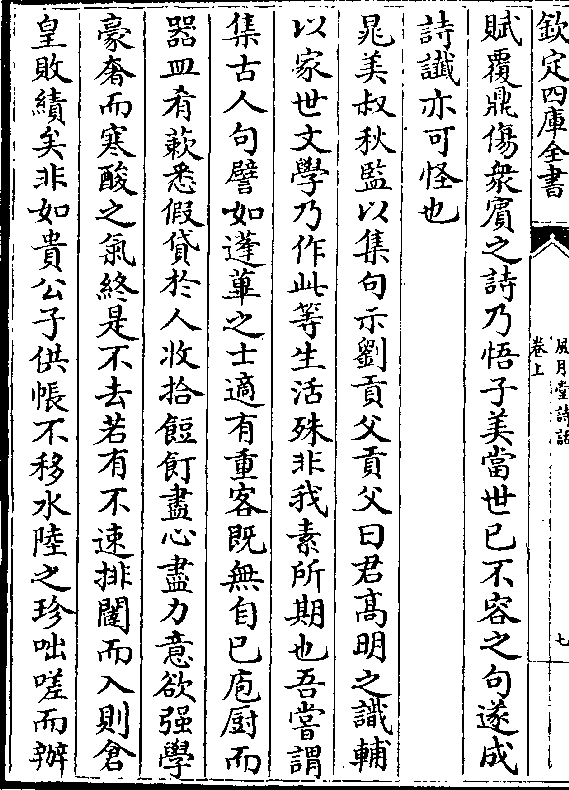 欽定四庫全書
風月堂詩話
卷上
七
賦覆鼎傷衆賓之詩乃悟子美當世已不容之句遂成
詩䜟亦可怪也
晁美叔秋監以集句示劉貢父貢父曰君髙明之識輔
以家世文學乃作此等生活殊非我素所期也吾嘗謂
集古人句譬如蓬蓽之士適有重客既無自已庖厨而
器皿肴蔌悉假貸於人收拾餖飣盡心盡力意欲强學
豪奢而寒酸之氣終是不去若有不速排闥而入則倉
皇敗績矣非如貴公子供帳不移水陸之珍咄嗟而辦